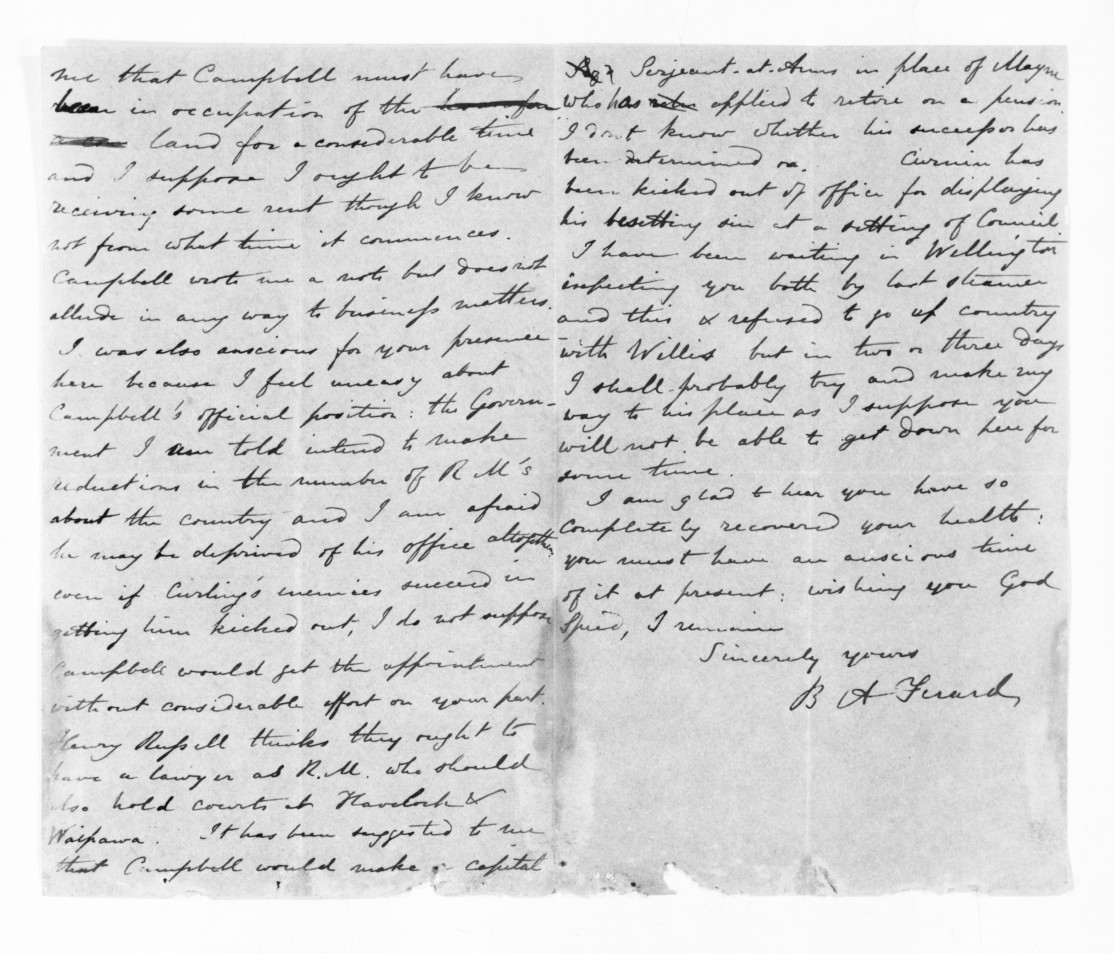 me that Campbell must have
been in occupation of the
land for a considerable time
and I suppose I ought to be
receiving some rent though I know
not from what time it commences.
Campbell wrote me a note but does not
allude in any way to business matters.
I was also anxious for your presence
here because I feel uneasy about
Campbell's official position: the Govern-
ment I am told intend to make
reductions in the number of R M's
about the country and I am afraid
he may be deprived of his office altogether
even if Curling's enemies succeed in
getting him kicked out, I do not suppose
Campbell would get the appointment
without considerable effort on your part.
Henry Russell thinks they ought to
have a lawyer as R.M. who should
also hold courts at Havelock &
Waipawa. It has been suggested to me
that Campbell would make a capital
Serjeant-at-Arms in place of Mayne
who has applied to retire on a pension
I don't know whether his successor has
been determined on. Curnin has
been kicked out of office for displaying
his besetting sin at a sitting of Council.
I have been waiting in Wellington
expecting you both by last steamer
and this & refused to go up country
with Willis but in two or three days
I shall probably try and make my
way to his place as I suppose you
will not be able to get down here for
some time.
I am glad to hear you have so
completely recovered your health:
you must have an anxious time
of it at present: wishing you God
Speed, I remain
Sincerely yours
B A Ferard